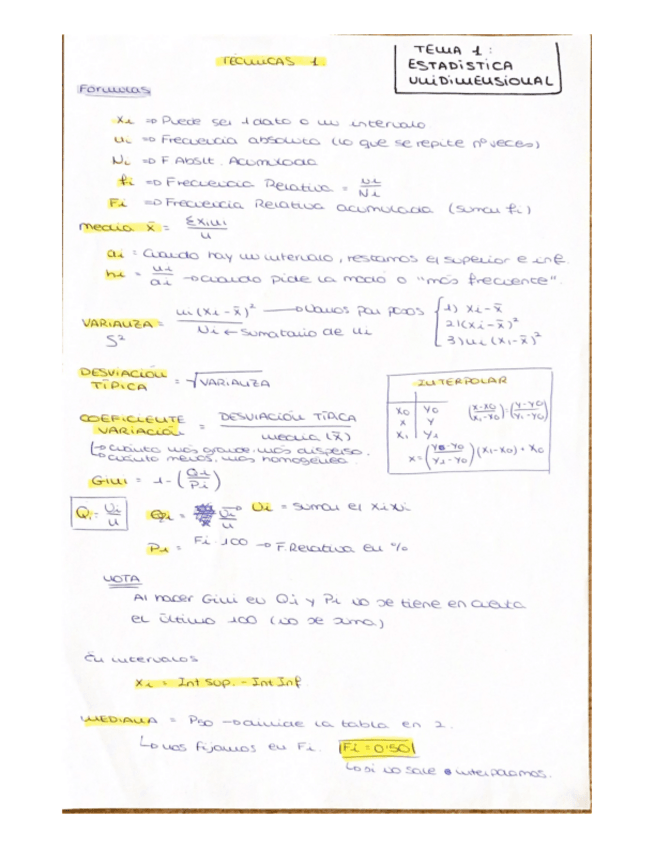 TÉCNICAS 1.
TEMA 1:
ESTADÍSTICA
UNIDIMENSIONAL
Fórmulas
xi => Puede ser 1 dato o un intervalo
ni => Frecuencia absoluta (lo que se repite nº veces)
Ni => F Abslt. Acumulada
fi => Frecuencia Relativa = ni/Ni
Fi => Frecuencia Relativa acumulada (sumar fi)
media x̄ = Σxini/n
ai = Cuando hay un intervalo, restamos el superior e inf.
hi = ni/ai → cuando pide la moda o "más frecuente".
VARIANZA S² = ni(xi - x̄)²/Ni → Vamos por pasos
Ni ← Sumatorio de ni
1) xi - x̄
2) (xi - x̄)²
3) ni (xi - x̄)²
DESVIACIÓN TÍPICA = √VARIANZA
COEFICIENTE VARIACIÓN = DESVIACIÓN TÍPICA/media (x̄)
↳ cuánto más grande, más disperso.
↳ cuánto menos, más homogéneo.
INTERPOLAR
x0 y0
x y
x1 y1
(x-x0/x1-x0) = (y-y0/y1-y0)
x = (y-y0/y1-y0)(x1-x0) + x0
Gini = 1 - (Qi/Pi)
Qi = Ui/u
Qi = Ui/u → Ui = sumar el xini
Pi = Fi · 100 → F. Relativa en %
NOTA
Al hacer Gini en Qi y Pi no se tiene en cuenta
el último 100 (no se suma)
En intervalos
xi = Int Sup. - Int Inf.
MEDIANA = P50 → divide la tabla en 2.
↳ nos fijamos en Fi. Fi = 0'50
↳ si no sale interpolamos.